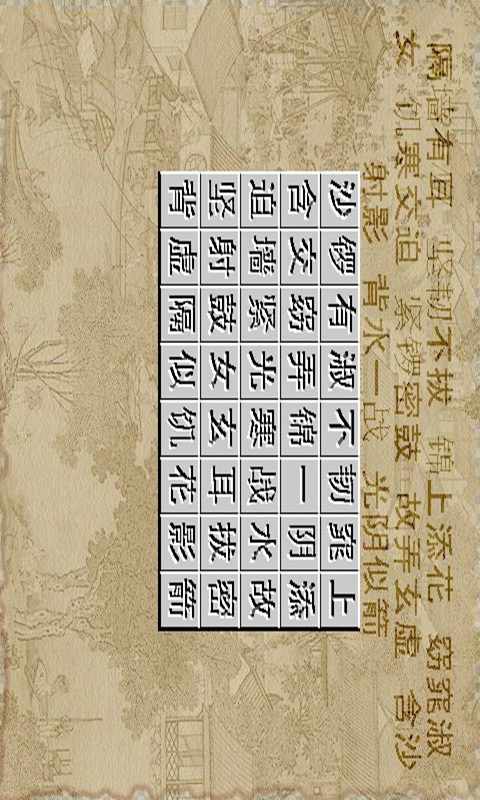 隔墙有耳 坚韧不拔 锦上添花 窈窕淑
女 饥寒交迫 紧锣密鼓 故弄玄虚 含沙
射影 背水一战 光阴似箭
沙 锣 有 淑 不 韧 窕 上
含 交 窈 弄 锦 一 阴 添
迫 墙 紧 光 寒 战 水 故
坚 射 鼓 女 玄 耳 拔 密
背 虚 隔 似 饥 花 影 箭